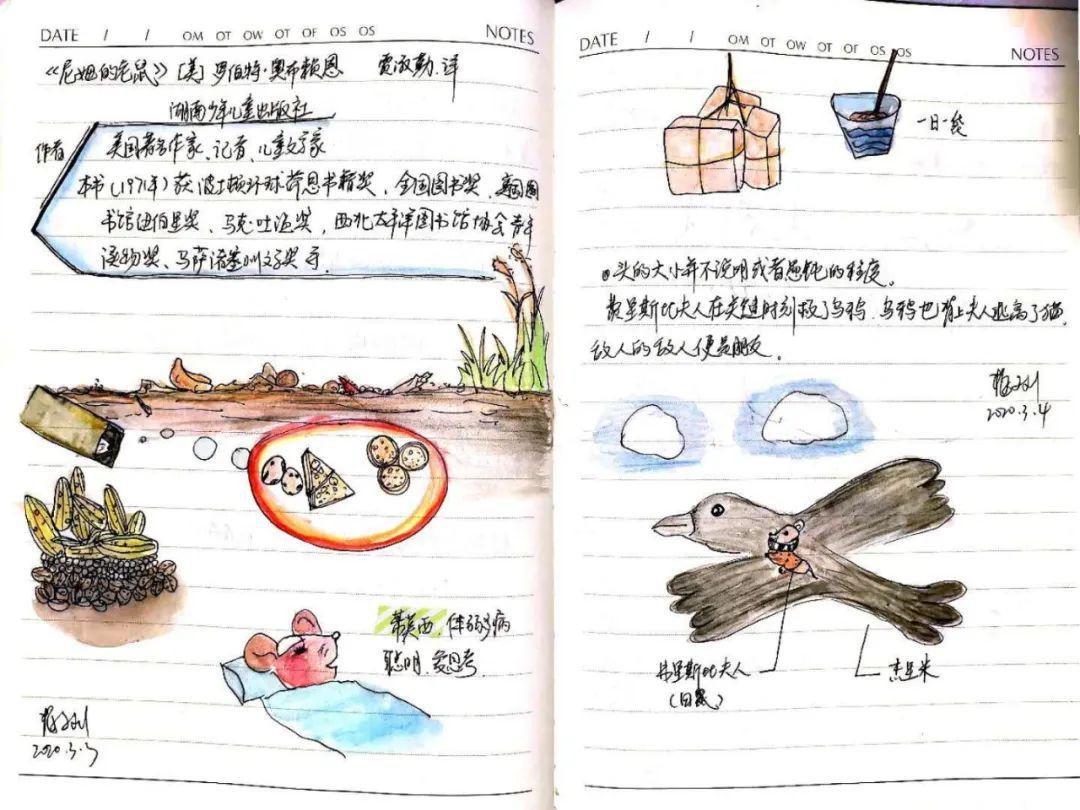 DATE / / OM OT OW OT OF OS OS NOTES
《尼姆的老鼠》[美]罗伯特·奥布赖恩 贾淑勤.译
湖南少年儿童出版社
作者 美国著名作家、记者、儿童文学家
本书(1971年)获波士顿环球荐思书籍奖、全国图书奖、美国图
书馆纽伯里奖、马克·吐温奖,西北太平洋图书馆协会青年
读物奖、马萨诸塞州文学奖等.
蒂莫西.体弱多病
聪明.爱思考.
2020.3.3
DATE / / OM OT OW OT OF OS OS NOTES
一日一绘
头的大小并不说明或者愚钝的程度。
费里斯比夫人在关键时刻救了乌鸦.乌鸦也背上夫人逃离了猫.
敌人的敌人便是朋友。
2020.3.4
弗里斯比夫人
(田鼠)
杰里米